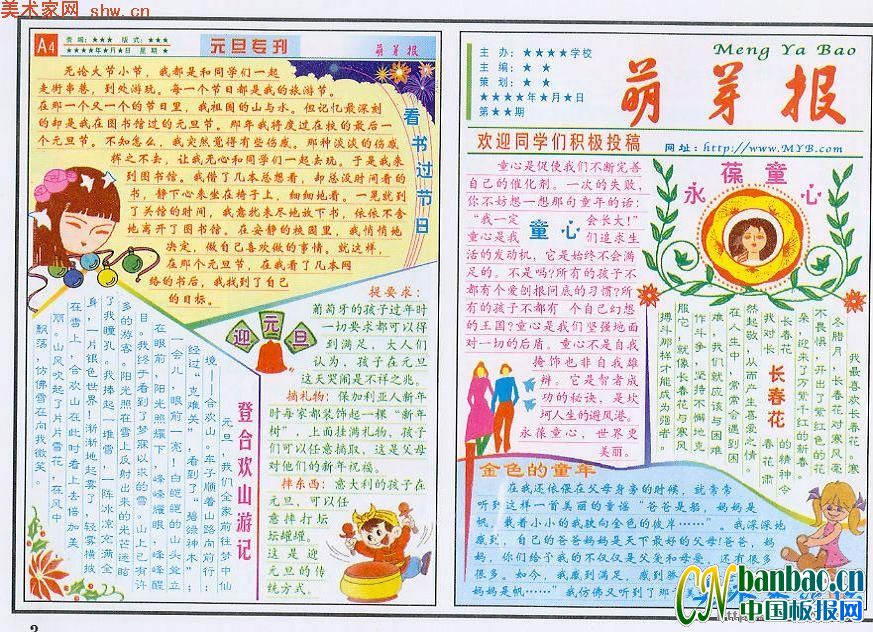 美术家网 shw.cn
A4
责编：★★★ 版式：★★★
★★★★年★月★日 星期 ★
元旦专刊
萌芽报
无论大节小节，我都是和同学们一起
走街串巷，到处游玩。每一个节日都是我的旅游节。
在那一个又一个的节日里，我祖国的山与水。但记忆最深刻
的却是我在图书馆过的元旦节。那年我将度过在校的最后一
个元旦节。不知怎么，我突然觉得有些伤感。那种淡淡的伤感
挥之不去，让我无心和同学们一起去玩。于是我来
到图书馆。我借了几本总想看，却总没时间看的
书，静下心来坐在椅子上，细细地看。一晃就到
了关馆的时间，我意犹未尽地放下书，依依不舍
地离开了图书馆。在安静的校园里，我悄悄地
决定，做自己喜欢做的事情。就这样，
在那个元旦节，在我看了几本网
络的书后，我找到了自己
的目标。
看书过节日
迎元旦
提要求：
葡萄牙的孩子过年时
一切要求都可以得
到满足，大人们
认为，孩子在元旦
这天哭闹是不祥之兆。
摘礼物：保加利亚人新年
时每家都装饰起一棵“新年
树”，上面挂满礼物，孩子
们可以任意摘取，这是父母
对他们的新年祝福。
摔东西：意大利的孩子在
元旦，可以任
意摔打坛
坛罐罐。
这是迎
元旦的传
统方式。
登合欢山游记
元旦，我们全家前往梦中仙
境——合欢山。车子顺着山路向前行；
经过“克难关”，看到了“碧绿神木”；
一会儿，眼前一亮！白皑皑的山头耸立
在眼前，阳光照耀下，峰峰耀眼，峰峰醒
目。我终于看到了梦寐以求的雪。山上已有许
多的游客。阳光照在雪上反射出来的光芒迷眩
了我瞳孔。我捧起一堆雪，一阵冰凉充满全
身，一片银色世界！渐渐地起雾了，轻雾横披
在雪上，合欢山在此时看上去倍加美
丽。山风吹起了片片雪花，在风中
飘落，仿佛雪在向我微笑。
2
主办：★★★★学校
主编：★ ★
策划：★ ★
★★★★年★月★日
第★★期
Meng Ya Bao
萌芽报
欢迎同学们积极投稿
网址：http://www.MYB.com
童心是促使我们不断完善
自己的催化剂。一次的失败，
你不妨想一想那句童年的话：
“我一定会长大！”
童心是我们追求生
活的发动机，它是始终不会满
足的。不是吗？所有的孩子不
都有个爱刨根问底的习惯？所
有的孩子不都有 个自己幻想
的王国？童心是我们坚强地面
对一切的后盾。童心不是自我
掩饰也非自我雄
辩。它是智者成
功的秘诀，是坎
坷人生的避风港。
永葆童心，世界更
美丽。
童心
永葆童心
长春花
我最喜欢长春花。寒
冬腊月，长春花对寒风毫
不畏惧，开出了紫红色的花
朵，迎来了万紫千红的新春。
长春花的精神令
我对长春花肃
然起敬，从而产生喜爱之情。
在人生中，常常会遇到困
难，我们就应该与困难
作斗争，坚持不懈地克
服它，就像长春花与寒风
搏斗那样才能成为强者。
金色的童年
在我还依偎在父母身旁的时候，就常常
听到这样一首美丽的童谣“爸爸是船，妈妈是
帆，载着小小的我驶向金色的彼岸……”。我深深地
感到，自己的爸爸妈妈是天下最好的父母！爸爸，妈
妈，你们给予我的不仅仅是父爱和母爱，还有很多
很多。如今，我感到满足，感到
妈妈是帆……”我仿佛又听到了那
CN banbao.cn
中国板报网